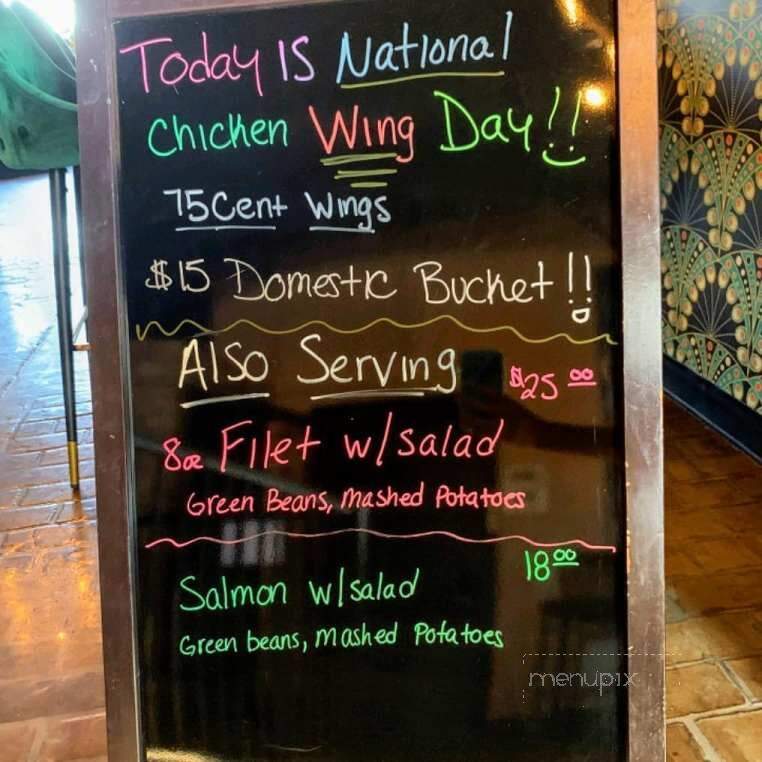 Today Is National
Chicken Wing Day!!
75 Cent Wings
$15 Domestic Bucket!!
Also Serving
$25 00
8oz Filet w/salad
Green Beans, mashed Potatoes
18 00
Salmon w/salad
Green beans, mashed Potatoes
menupix